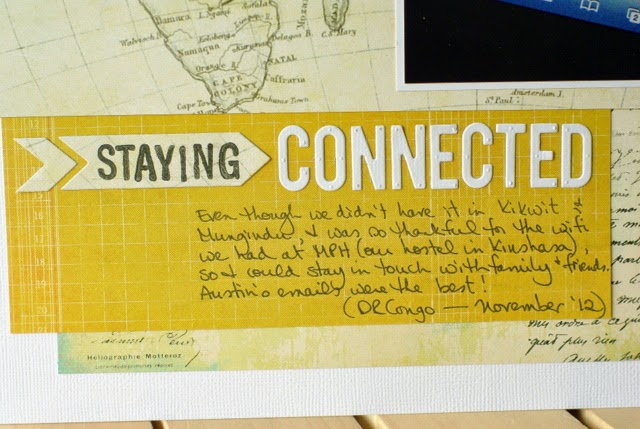 Damara
I. Ngami
Kalahari
Walvisch B.
Namaqua
Kuruman
Delagoa B.
C. S. Mary
Orange R.
NATAL
Caffraria
CAPE
COLONY
Cape Town
Grahams Town
Amsterdam I.
St Paul
STAYING CONNECTED
Even though we didn't have it in Kikwit &
Mungindu, I was so thankful for the wifi
we had at MPH (our hostel in Kinshasa),
so I could stay in touch with family & friends.
Austin's emails were the best!
(DRCongo — November '12)
Heliographie Motteroz